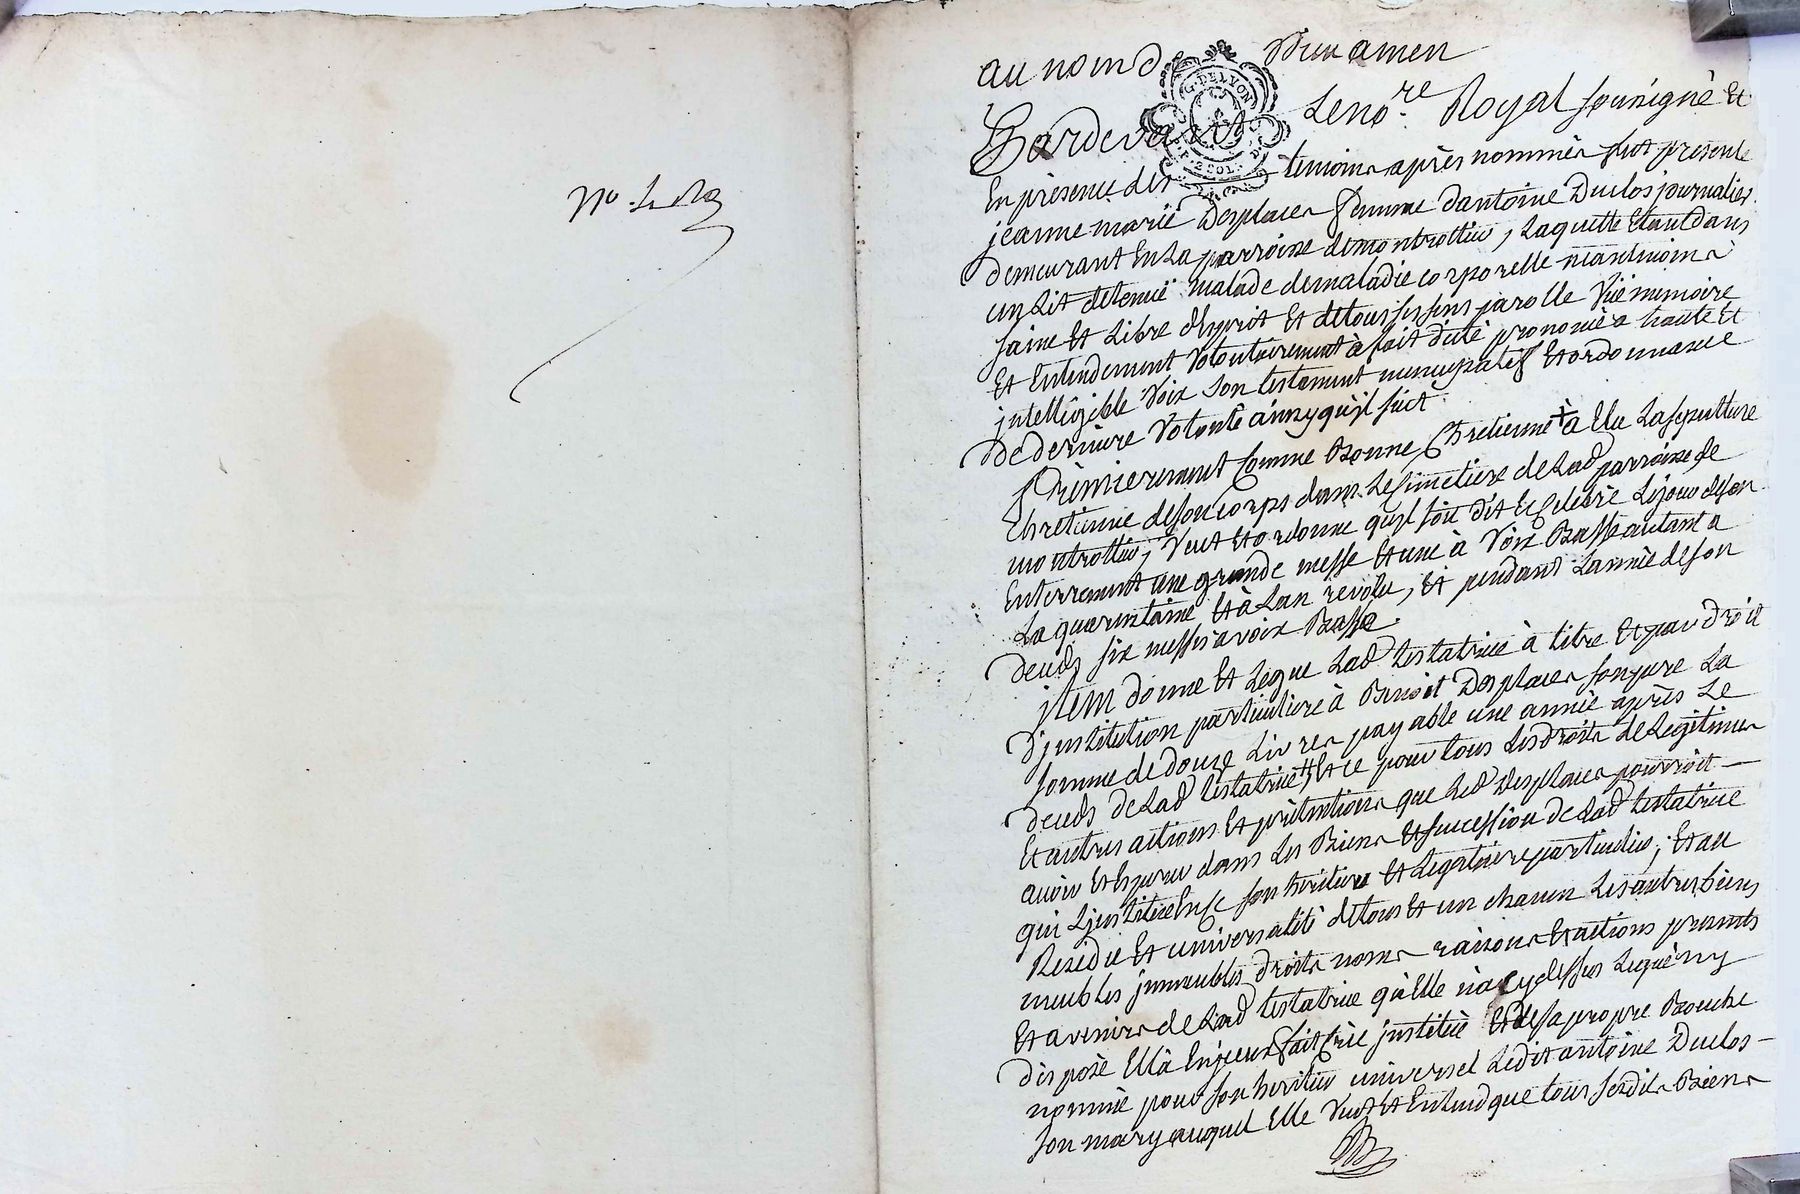 au nom de Dieu amen
G. DE LYON
2 SOL. D.
Pardevant Le no.re Royal soussigné et
En présence des temoins après nommés fut presente
jeanne marie Desplaces femme d'antoine Duclos journalier
demeurant En La parroisse de montrottier, Laquelle Etant dans
un Lit detenüe malade de maladie corporelle neantmoins
saine Et Libre d'Esprit Et de tous ses sens parolle Vüe memoire
Et Entendement Volontairement à fait dicté prononcé a haute et
intelligible Voix son testament nuncupatif Et ordonnance
de derniere Volonté ainsy qu'il suit
Premierement Comme Bonne Chretienne + a Elu La sepulture
Chretienne de son corps dans Le Simetiere de Lad parroisse de
montrottier, Veut Et ordonne qu'il soit dit Et Celebré Le jour de son
Enterrement une grande messe Et une à Voix Basse autant a
La quarantaine Et à L'an revolu, Et pendant L'année de son
deceds six messes a voix Basse
jtem donne Et Legue Lad testatrice à titre Et par droit
d'jnstitution particuliere à Benoit Desplaces son pere La
somme de douze Livres payable une année après Le
deceds de Lad testatrice # Et ce pour tous Les droits de Legitimes
Et autres actions Et prétentions que Led Desplaces pourroit
avoir Et Esperer dans Les Biens Et succession de Lad testatrice
qui L'jnstitue En ce son heritier Et Legataire particulier; Et au
Residu Et universalité de tous Et un chacun Les autres biens
meubles jmmeubles droits noms raisons Et actions presents
Et avenirs de Lad testatrice qu'Elle n'a cy dessus Legué ny
disposé Elle à En jceux fait créé jnstitué Et de sa propre Bouche
nommé pour son heritier universel Ledit antoine Duclos
son mary auquel Elle Veut Et Entend que tous sesdits Biens